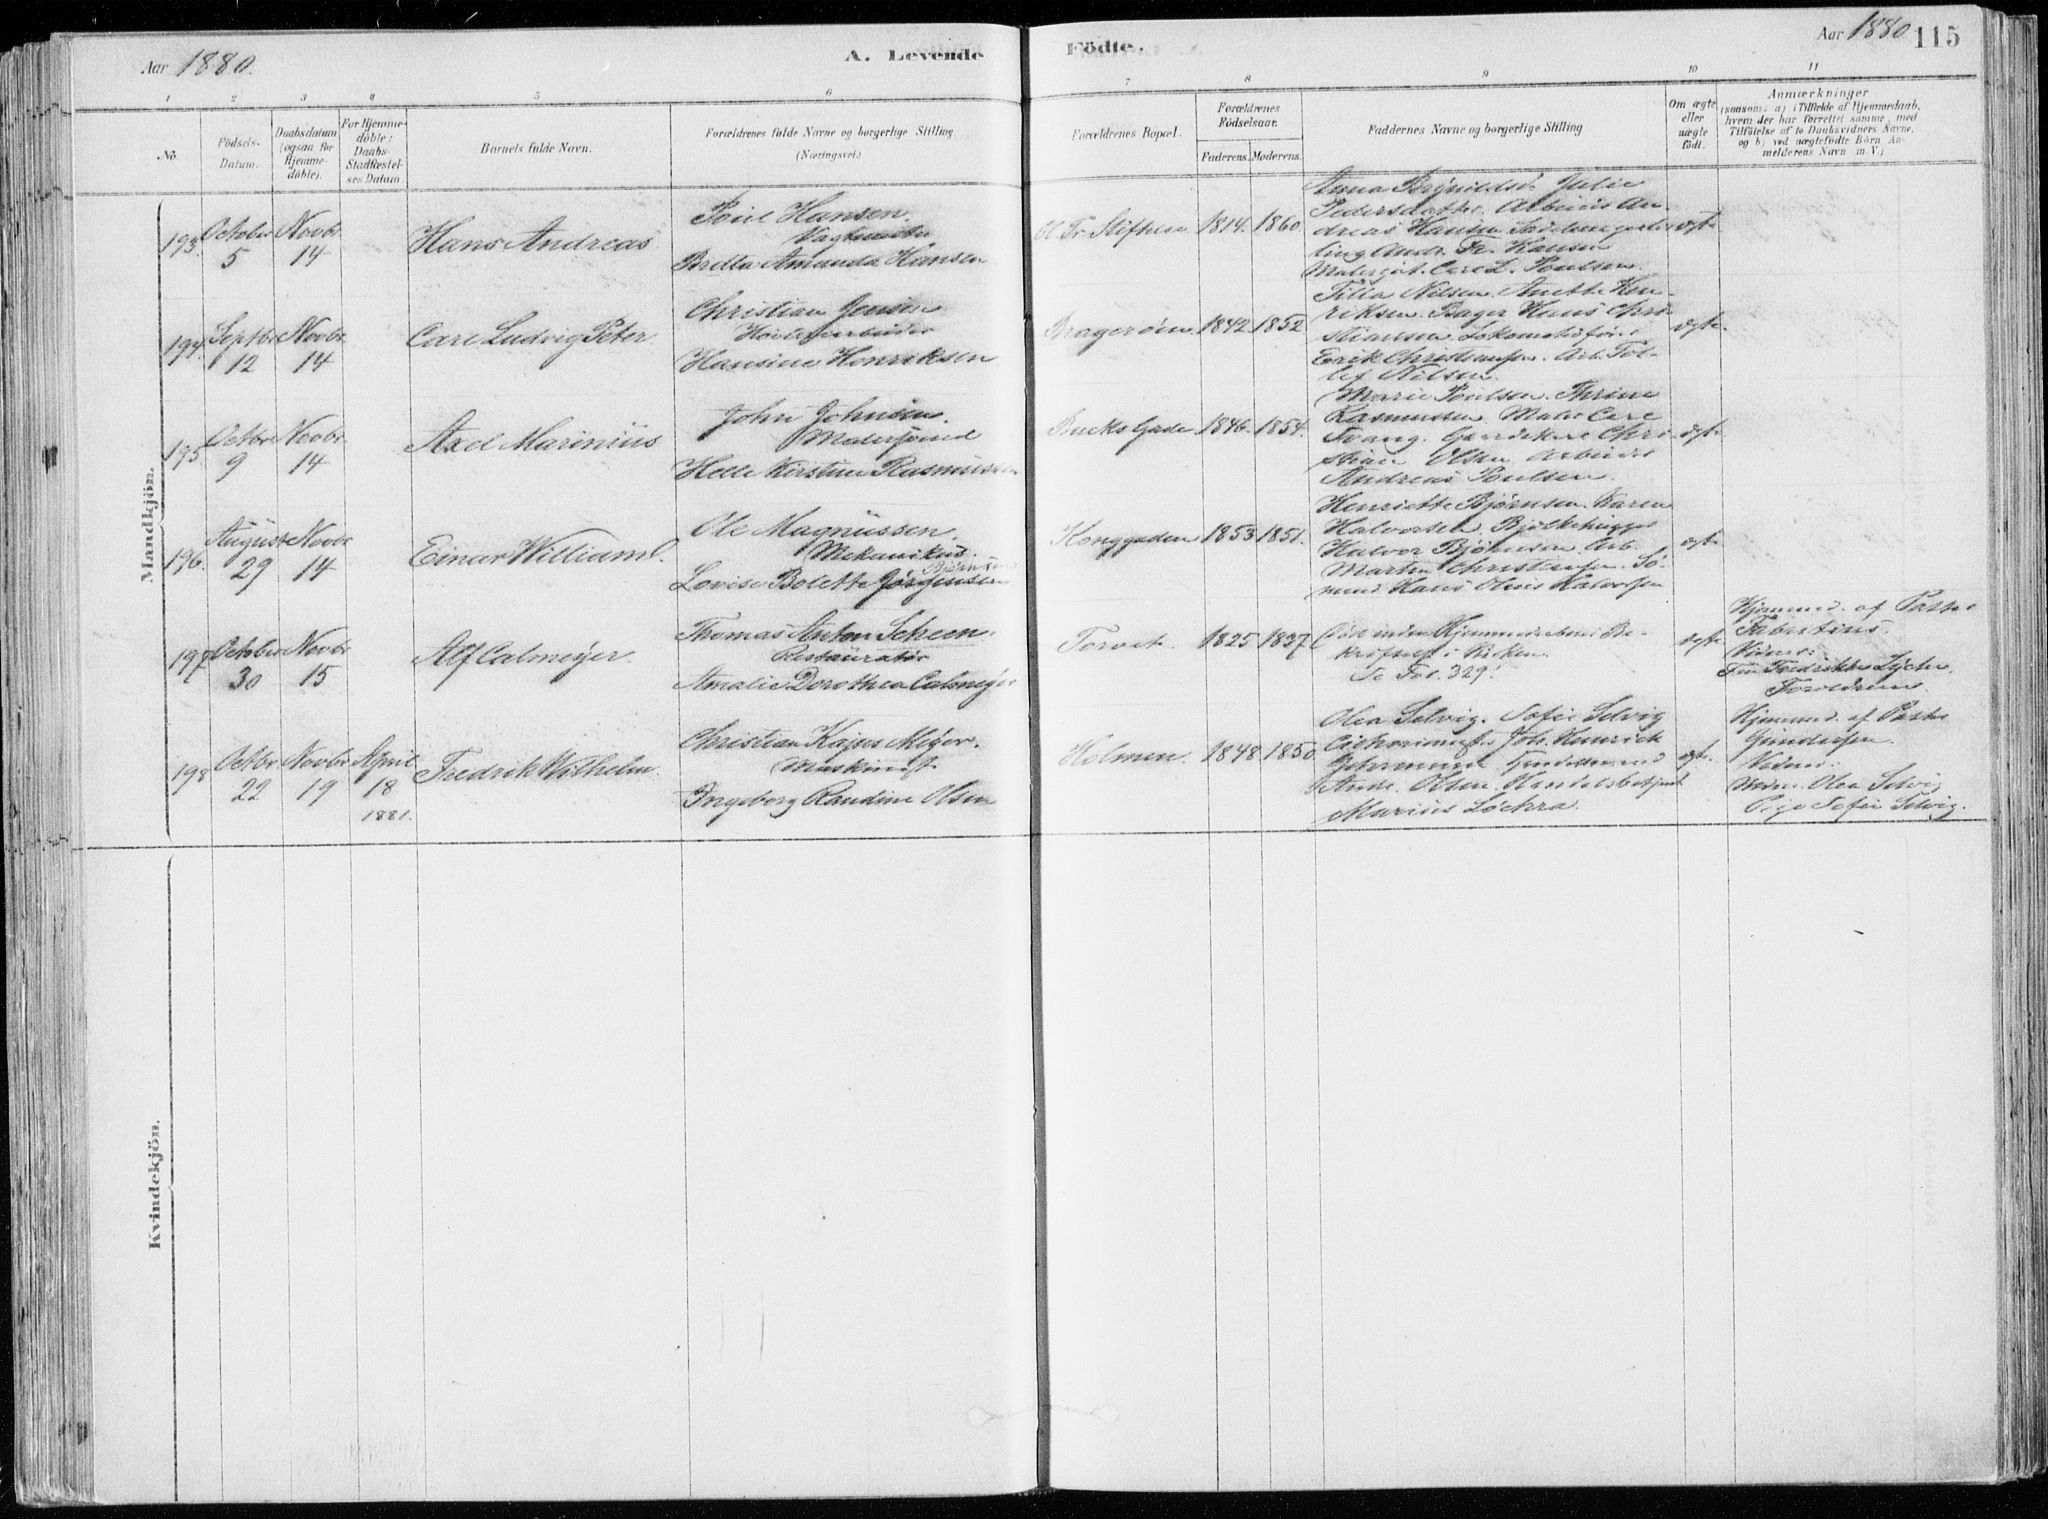 Aar 1880.
A. Levende
Födte.
Aar 1880
115
1 2 3 4 5 6 7 8 9 10 11
No.
Födsels-
Datum.
Daabsdatum
(ogsaa for
Hjemme-
döbte).
For Hjemme-
döbte:
Daabs-
Stadfæstel-
ses Datum.
Barnets fulde Navn.
Forældrenes fulde Navne og borgerlige Stilling
(Næringsvei.)
Forældrenes Bopæl.
Forældrenes
Födselsaar.
Faderens. Moderens.
Faddernes Navne og borgerlige Stilling
Om ægte
eller
uægte
födt.
Anmærkninger
(saasom: a) i Tilfælde af Hjemmedaab,
hvem der har forrettet samme, med
Tilföielse af to Daabsvidners Navne,
og b) ved uægtefödte Börn An-
melderens Navn m. V.)
Mandkjön.
193. October 5
Novbr 14
Hans Andreas
Hansen.
Amanda Hansen
Stiftelse 1814. 1860.
Anna Julie
Pedersdatter. An-
dreas Hansen
Fr. Hansen
L. Poulsen.
194. Septbr 12
Novbr. 14
Carl Ludvig Peter
Christian Jensen
Hansine Henriksen
Bragerøen 1842. 1852.
Nilsen. Anette Hen-
riksen. Bager Hans Chri-
stiansen Lokomotivfører
Erik Christiansen. Arb. Tol-
lef Nilsen.
ægte
195. Octbr 9
Novbr. 14
Axel Marinius
John Johnsen.
Malersvend
Helle Kirstine Rasmussen
Bucks Gade 1846. 1854.
Marie Poulsen. Thrine
Rasmussen Maler Carl
Chri-
stian Olsen Arbeider
Andreas Poulsen.
ægte
196. August 29
Novbr 14
Einar William.
Ole Magnussen.
Mekanikus.
Bjørnsen
Lovise Bolette Jørgensen
Konggaden 1853 1851.
Henriette Bjørnsen Karen
Halvorsen. Bjelkehugger
Halvor Bjørnsen Arb.
Martin Christiansen. Sö-
mand Hans Halvorsen
ægte
197. October 30
Novbr 15
Alf Calmeyer.
Thomas Anton Scheen.
Restauratør
Amalie Dorothea Calmeyer
Torvet. 1825 1837
Hjemmedaaben Be-
kræftet i Kirken.
Se Fol. 329.
ægte
Hjemmed. af Pastor
Fabritius.
Vidner:
Forældrene.
198 Octbr. 22
Novbr 19
April 18
1881.
Fredrik Wilhelm.
Christian Meyer.
Maskinist.
Ingeborg Randine Olsen
Holmen. 1848. 1850.
Olea Selvig. Sofie Selvig
Joh. Henrik
Olsen. Handelsbetjent
Marius Løchra.
ægte.
Hjemmed. af Pastor
Gundersen.
Vidner:
Olea Selvig
Pige Sofie Selvig.
Kvindekjön.